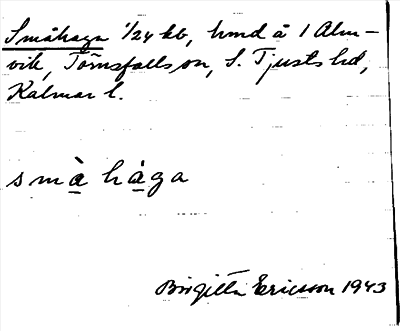 Småhaga 1/24 kb, hmd å 1 Alm-
vik, Törnsfalls sn, S. Tjusts hd,
Kalmar l.
smà hàga
Birgitta Ericsson 1943